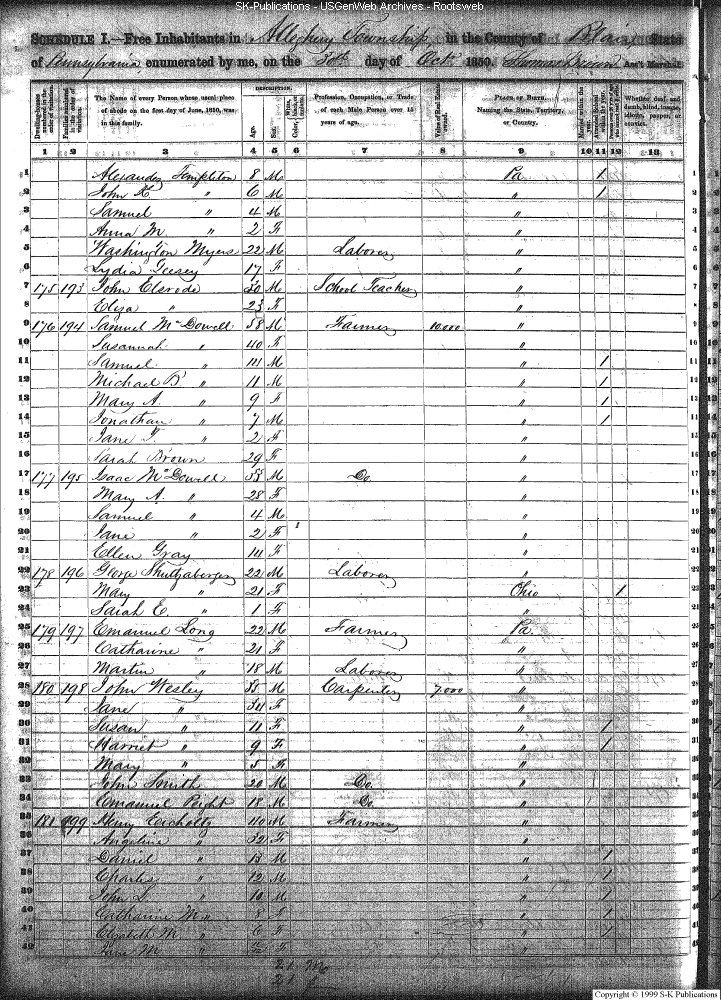 SK-Publications - USGenWeb Archives - Rootsweb
SCHEDULE I.—Free Inhabitants in Allegheny Township in the County of Blair State
of Pennsylvania enumerated by me, on the 30th day of Oct 1850. Ass't Marshal.
DESCRIPTION.
Dwelling-houses numbered in the order of visitation. Families numbered in the order of visitation. The Name of every Person whose usual place of abode on the first day of June, 1850, was in this family. Age. Sex. Profession, Occupation, or Trade of each Male Person over 15 years of age. Value of Real Estate owned. PLACE OF BIRTH. Naming the State, Territory, or Country. Married within the year. Whether deaf and dumb, blind, insane, idiotic, pauper, or convict.
1 2 3 4 5 6 7 8 9 10 11 12 13
1 Alexander Templeton 8 M Pa 1 1
2 John " 6 M " 1 2
3 Samuel " 4 M " 3
4 Anna M. " 2 F " 4
5 Washington Myers 22 M Laborer " 5
6 Lydia Geesey 17 F " 6
7 175 193 John Elsrode 30 M School Teacher " 7
8 Eliza " 23 F " 8
9 176 194 Samuel McDowell 58 M Farmer 10.000 " 9
10 Susannah " 40 F " 10
11 Samuel " 14 M " 1 11
12 Michael B " 11 M " 1 12
13 Mary A. " 9 F " 1 13
14 Jonathan " 7 M " 1 14
15 Jane " 2 F " 15
16 Sarah Brown 29 F " 16
17 177 195 Isaac McDowell 38 M Do. " 17
18 Mary A. " 28 F " 18
19 Samuel " 4 M " 19
20 Jane " 2 F " 20
21 Ellen Gray 14 F " 21
22 178 196 George 22 M Laborer " 22
23 Mary " 21 F Ohio 1
24 Sarah E. " 1 F "
25 179 197 Emanuel Long 22 M Farmer Pa
26 Catharine " 21 F "
27 Martin " 18 M Laborer "
28 180 198 John Wesley 38 M Carpenter 7.000 "
29 Jane " 34 F "
30 Susan " 11 F " 1
31 Harriet " 9 F " 1
32 Mary " 5 F "
33 John Smith 20 M Do. "
34 Emanuel 18 M Do. "
35 181 199 Henry 40 M Farmer "
36 Angelina " 32 F "
37 Daniel " 13 M " 1
38 Charles " 12 M " 1
39 John " 10 M " 1
40 Catharine M " 8 F " 1
41 Elizabeth M " 6 F " 1
42 Jane M " F "
21 M
21 F
Copyright © 1999 S-K Publications